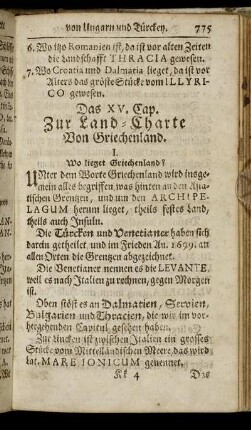 von Ungarn und Türckey. 775
6. Wo itzo Romanien ist, da ist vor alten Zeiten
die Landschafft THRACIA gewesen.
7. Wo Croatia und Dalmatia lieget, da ist vor
Alters das gröste Stücke vom ILLYRI-
CO gewesen.
Das XV. Cap.
Zur Land-Charte
Von Griechenland.
I.
Wo lieget Griechenland?
Unter dem Worte Griechenland wird insge-
mein alles begriffen, was hinten an den Asia-
tischen Grentzen, und um den ARCHIPE-
LAGUM herum lieget, theils festes Land,
theils auch Insuln.
Die Türcken und Venetianer haben sich
darein getheilet, und im Frieden An. 1699. an
allen Orten die Grentzen abgezeichnet.
Die Venetianer nennen es die LEVANTE,
weil es nach Italien zu rechnen, gegen Morgen
ist.
Oben stöst es an Dalmatien, Servien,
Bulgarien und Thracien, die wir im vor-
hergehenden Capitul gesehen haben.
Zur lincken ist zwischen Italien ein grosses
Stücke vom Mittelländischen Meere, das wird
MARE IONICUM genennet.
Kk 4